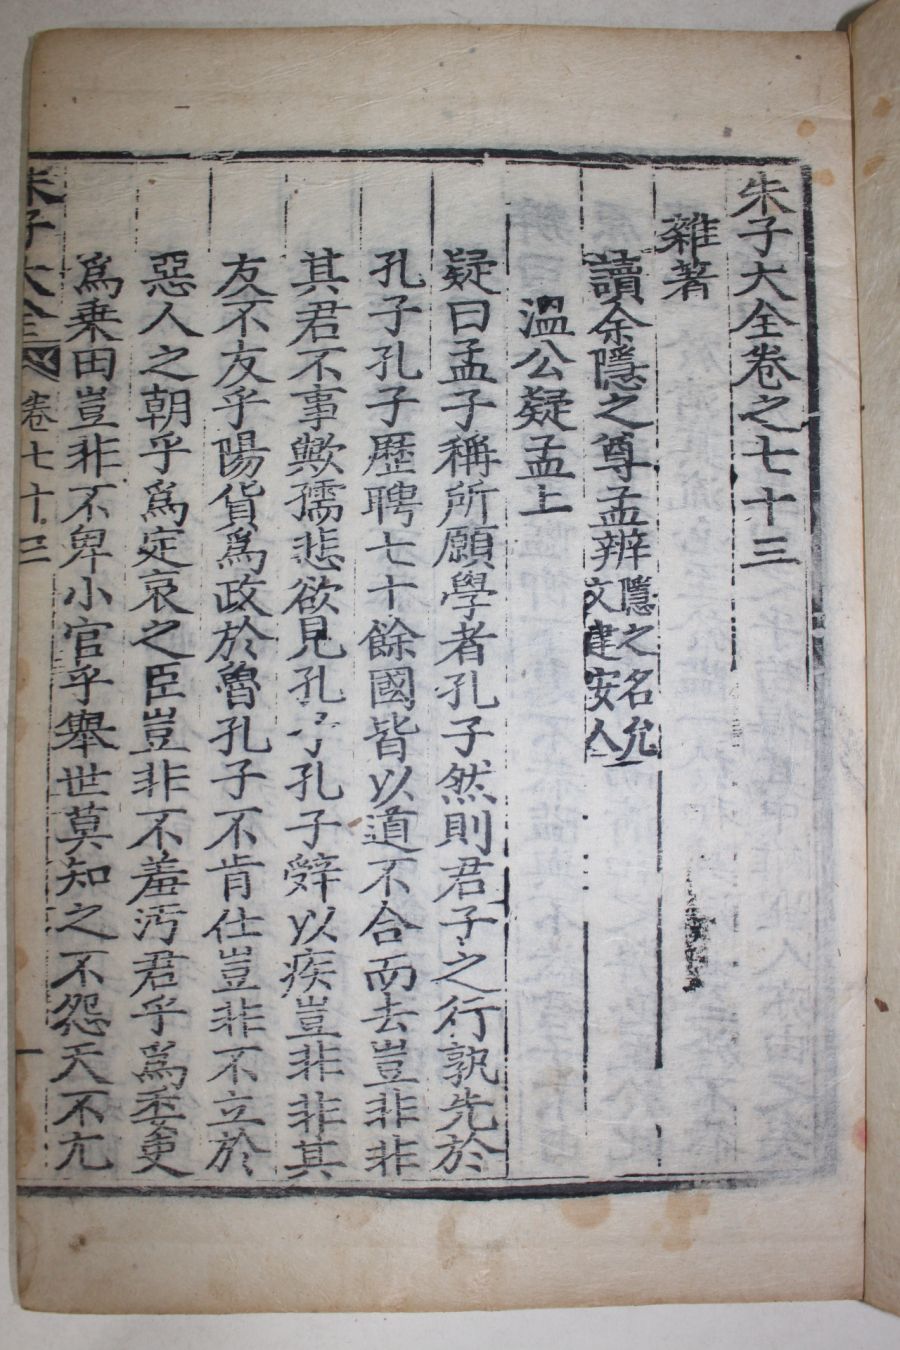 朱子大全卷之七十三
雜著
讀余隱之尊孟辨隱之名允文建安人
溫公疑孟上
疑曰孟子稱所願學者孔子然則君子之行孰先於
孔子孔子歷聘七十餘國皆以道不合而去豈非非
其君不事歟孺悲欲見孔子孔子辭以疾豈非非其
友不友乎陽貨爲政於魯孔子不肯仕豈非不立於
惡人之朝乎爲定哀之臣豈非不羞汚君乎爲委吏
爲乗田豈非不卑小官乎舉世莫知之不怨天不尤
朱子大全 卷七十三 一